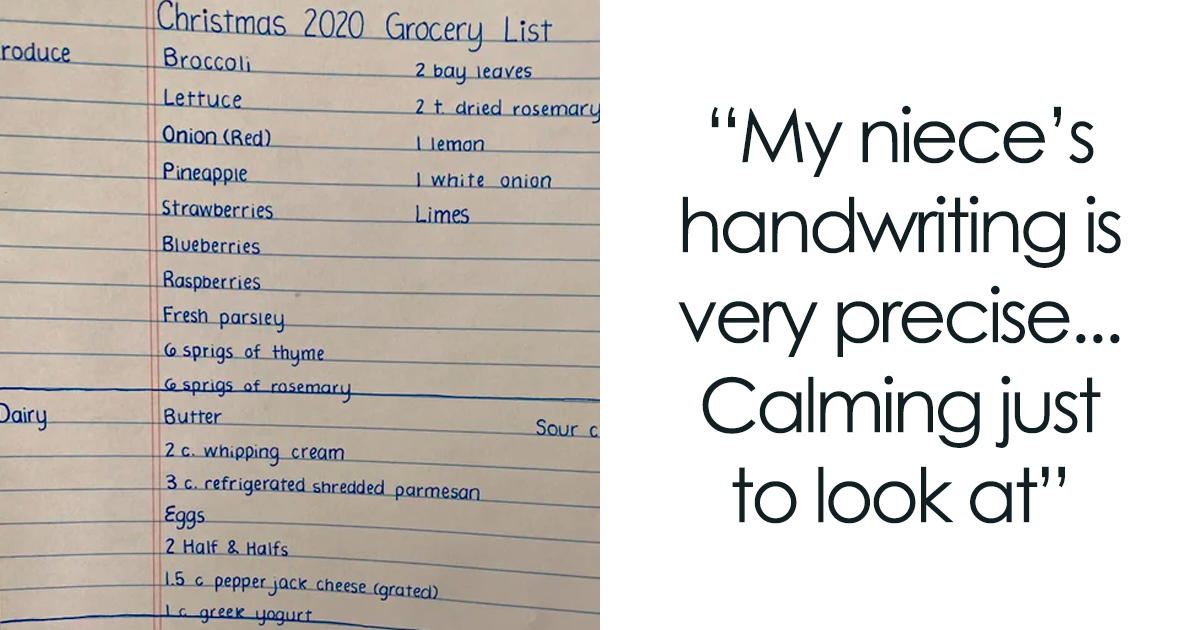 Christmas 2020 Grocery List
roduce
Broccoli
Lettuce
Onion (Red)
Pineapple
Strawberries
Blueberries
Raspberries
Fresh parsley
6 sprigs of thyme
6 sprigs of rosemary
2 bay leaves
2 t. dried rosemary
1 lemon
1 white onion
Limes
Dairy
Butter
2 c. whipping cream
3 c. refrigerated shredded parmesan
Eggs
2 Half & Halfs
1.5 c pepper jack cheese (grated)
1 c greek yogurt
Sour c
“My niece’s
handwriting is
very precise...
Calming just
to look at”